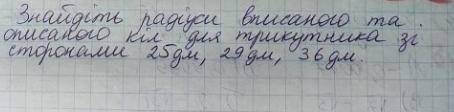 Знайдіть радіуси вписаного та
описаного кіл для трикутника зі
сторонами 25дм, 29дм, 36дм.